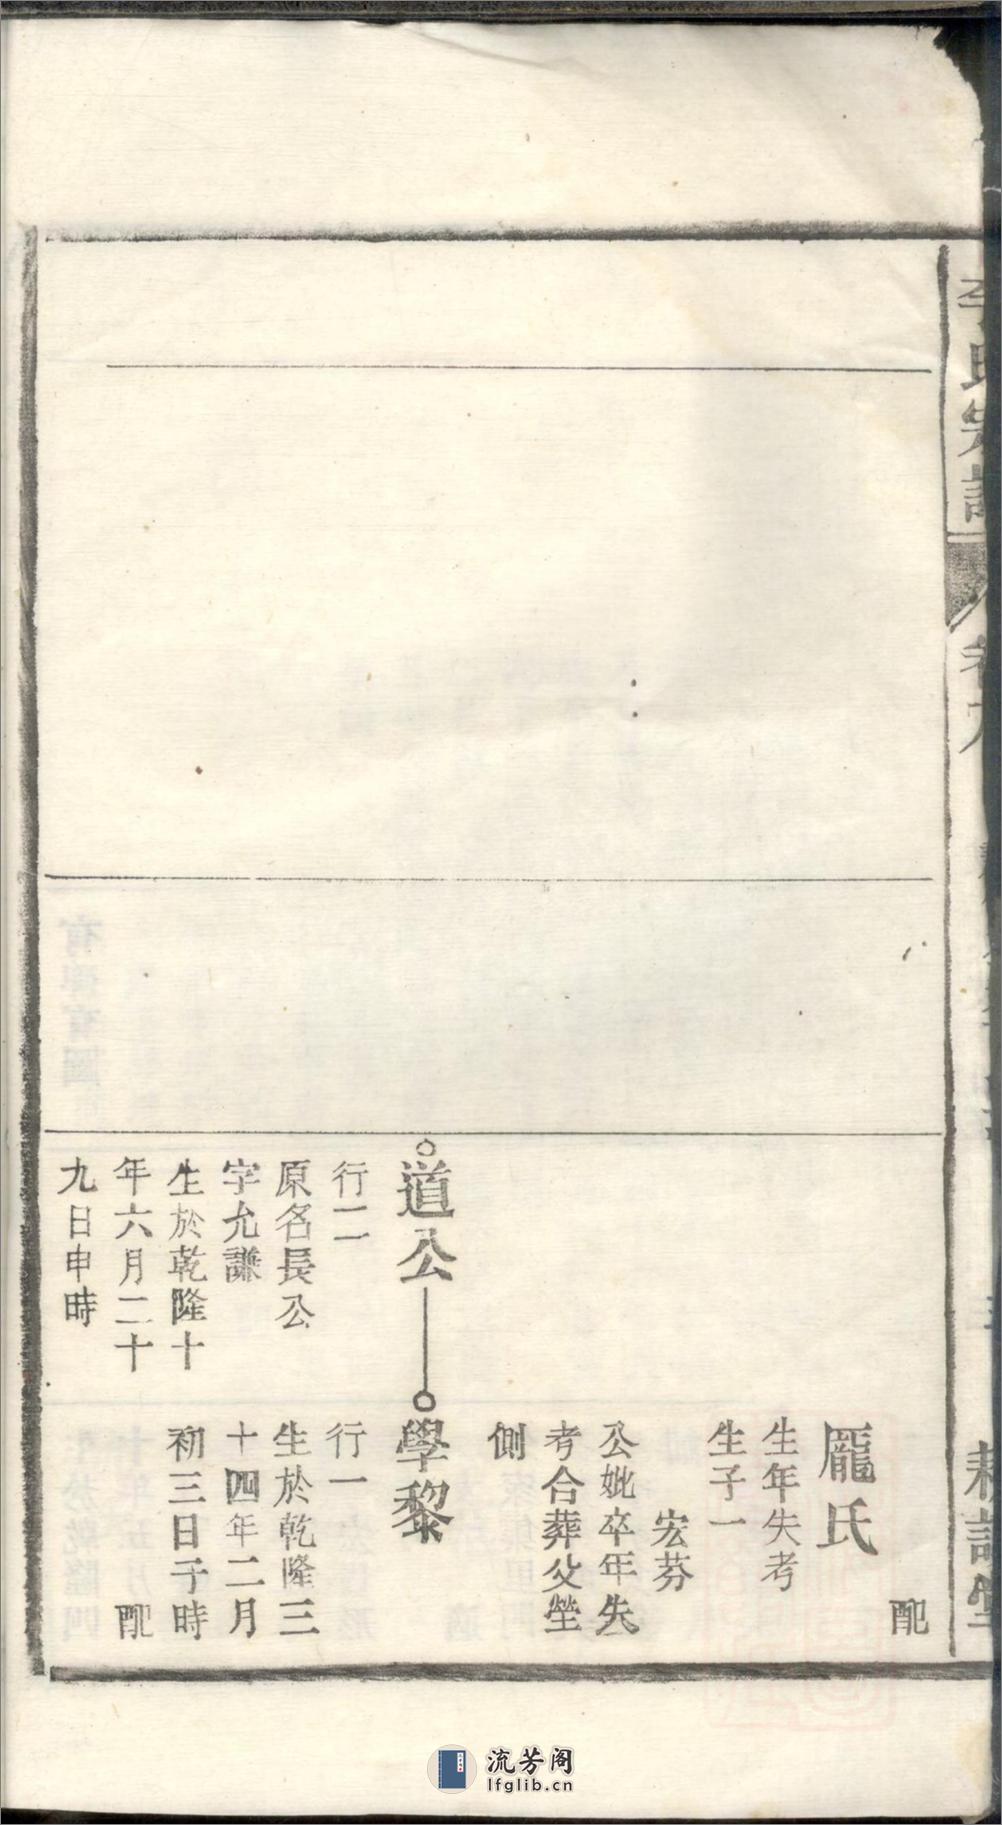 氏宗譜
卷九
耕讀堂
配
龎氏
生年失考
生子一
宏芬
公妣卒年失
考合葬父塋
側
道公
學黎
行二
原名長公
字允謙
生於乾隆十
年六月二十
九日申時
行一
生於乾隆三
十四年二月
初三日子時
配
流芳阁
lfglib.cn